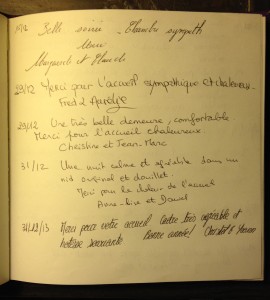 Belle soirée - Chambre sympath
Merci
29/12 Merci pour l'accueil sympathique et chaleureux.
Fred & Aurélie
29/12 Une très belle demeure, confortable
Merci pour l'accueil chaleureux
Christine et Jean-Marc
31/12 Une nuit calme et agréable dans un
nid original et douillet.
Merci pour la chaleur de l'accueil
Anne-Lise et
31/12/13 Merci pour votre accueil Cadre très agréable et
hôtesse Bonne année!